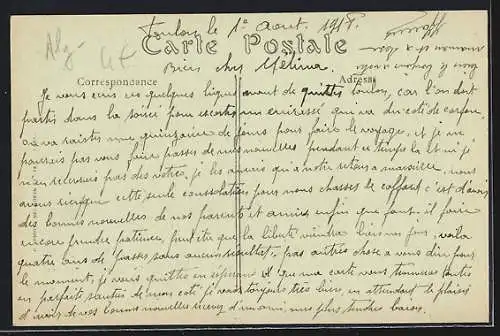 Toulon le 1er Aout 1918.
Carte Postale
Bien chez Mélina
Correspondance Adresse
Je vous écris ces quelques lignes avant de quitter Toulon, car l'on doit
partir dans la soirée pour escorter un cuirassé qui va du coté de Corfou,
on va rester une quinzaine de jours pour faire le voyage, et je ne
pourrais pas vous faire passer de mes nouvelles pendant ce temps là et si je
n'en recevais pas des votres, je les aurais qu'a notre retour a marseille, nous
avons que cette seule consolation pour nous chasser le caffard c'est d'avoir
des bonnes nouvelles de nos parents et amis, enfin que faut il faire
encore prendre patience, peut être que la liberté viendra bien un jour, voila
quatre ans de passés, sans aucun résultat, pas autres chose a vous dire pour
le moment, je vous quitte en espérant que ma carte vous trouvera toutes
en parfaite santée de mon coté je vais toujours très bien, en attendant le plaisir
d'avoir de vos bonnes nouvelles recevez d'un ami, mes plus tendres baisers.